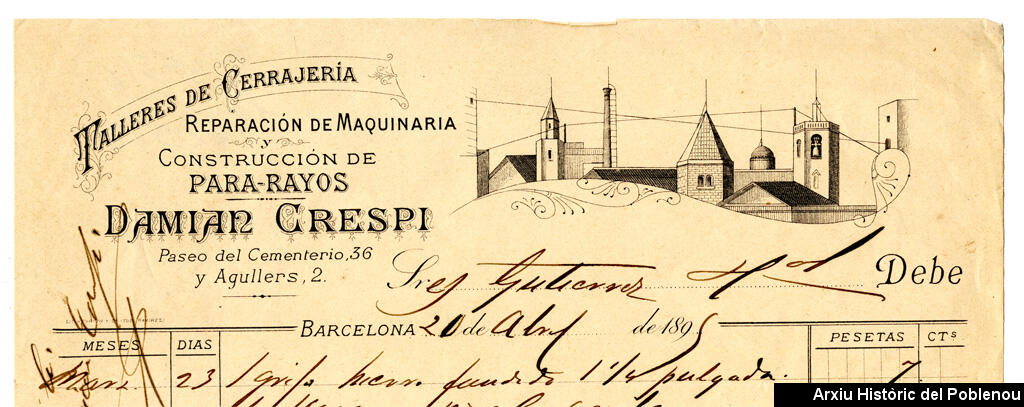 TALLERES DE CERRAJERÍA
REPARACIÓN DE MAQUINARIA
Y
CONSTRUCCIÓN DE
PARA-RAYOS
DAMIAN CRESPI
Paseo del Cementerio, 36
y Agullers, 2.
Sres Gutierrez Debe
BARCELONA 20 de Abril de 1895
MESES DIAS PESETAS CTS
Marz. 23 1 grifo hierro fundido 1 1/4 pulgada. 7
Arxiu Històric del Poblenou